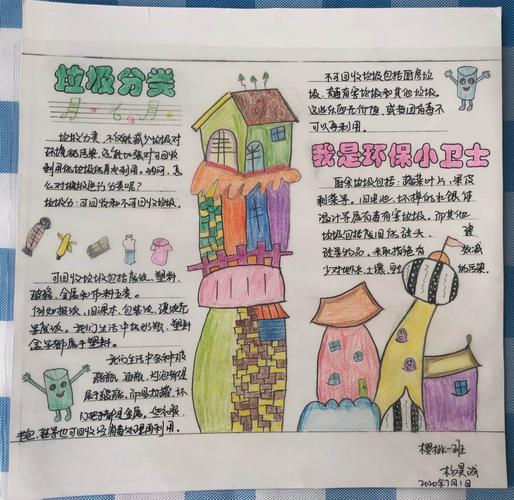 垃圾分类
垃圾分类,不仅能减少垃圾对
环境的污染,还能加强对可回收
利用低垃圾的再次利用。请问,怎
么对垃圾进行分类呢?
垃圾分:可回收和不可回收垃圾。
可回收垃圾包括废纸、塑料、
玻璃、金属和布料五类。
例如报纸、旧课本、包装纸、硬纸壳
等废纸。我们生活中的奶瓶、塑料
盒等都属于塑料。
我们生活中各种玻
璃瓶、酒瓶、灯泡都是
属于玻璃,而易拉罐、坏
门把手都是金属。还衣服、
书包、鞋等也可回收经消毒处理再利用。
不可回收垃圾包括厨房垃
圾、有毒有害垃圾和其他垃圾。
这些东西无价值,或者因有毒不
可以再利用。
我是环保小卫士
厨余垃圾包括:蔬菜叶片、果皮
剩菜等。旧电池、坏掉的水银体
温计等属有毒有害垃圾。而其他
垃圾包括废旧的砖头、
陶瓷物品,采取措施有 效减
少对地下水、土壤、 的污染。
樱桃一班
杨昊诚
2020年7月1日